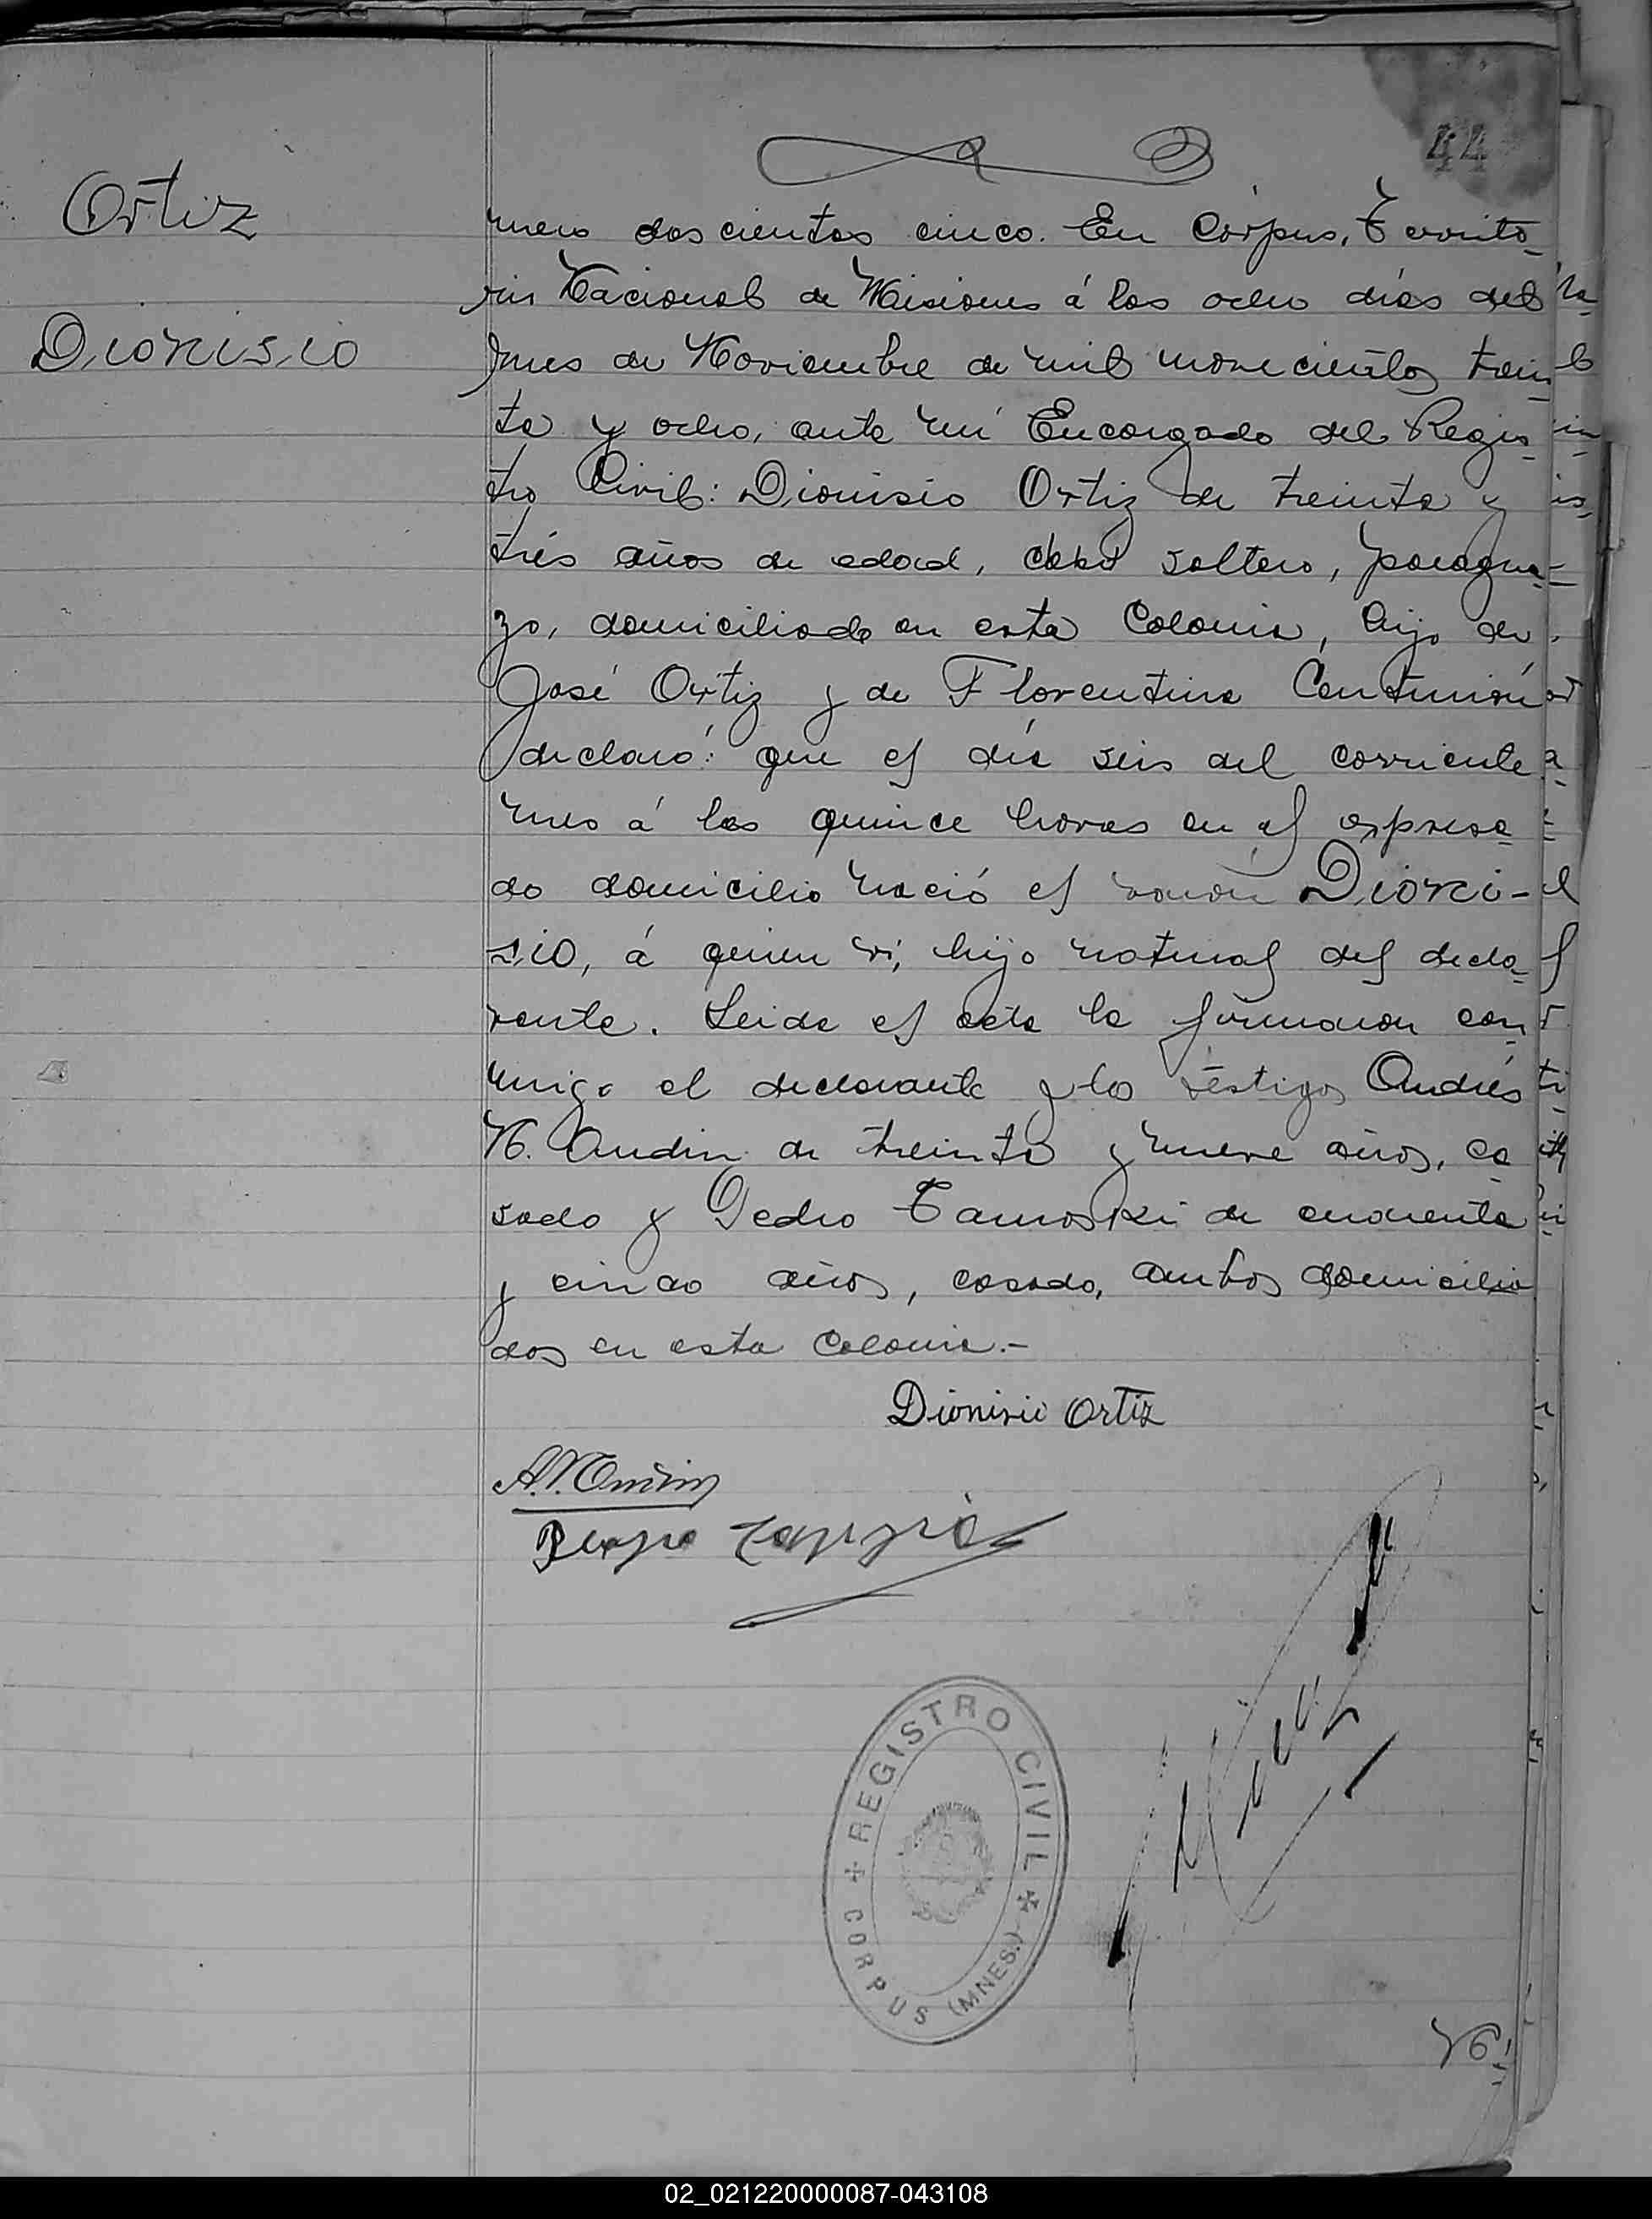 44
Ortiz
Dionisio
mero doscientos cinco. En Corpus, Territo-
rio Nacional de Misiones á los ocho días del
mes de Noviembre de mil novecientos trein-
ta y ocho, ante mí Encargado del Regis-
tro Civil: Dionisio Ortiz de treinta y
trés años de edad, soltero, paragua-
yo, domiciliado en esta Colonia, hijo de
José Ortiz y de Florentina
declaró: que el día seis del corriente
mes á las quince horas en el expresa-
do domicilio nació el varón Dioni-
sio, á quien ví, hijo natural del decla-
rante. Leida el acta la firmaron con-
migo el declarante y los téstigos Andrés
N. Audin de treinta y nueve años, ca-
sado y Pedro Tamoski de cuarenta
y cinco años, casado, ambos domicilia
dos en esta Colonia.-
Dionisio Ortiz
REGISTRO CIVIL
CORPUS (MNES.)
N6
02_021220000087-043108